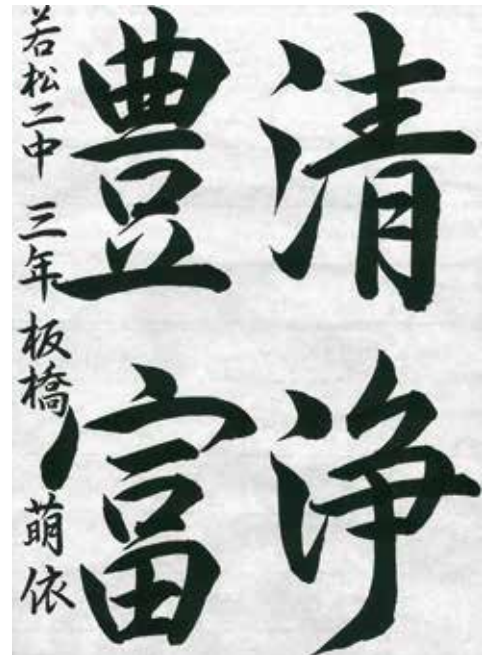 清浄
豊富
若松二中 三年 板橋 萌依